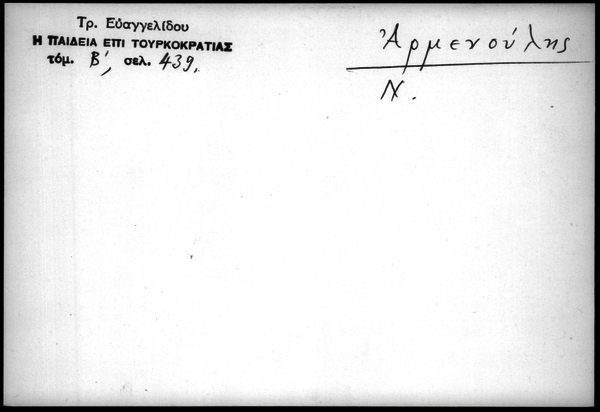 Τρ. Εὐαγγελίδου
Η ΠΑΙΔΕΙΑ ΕΠΙ ΤΟΥΡΚΟΚΡΑΤΙΑΣ
τόμ. Β', σελ. 439.
Ἀρμενούλης
Ν.